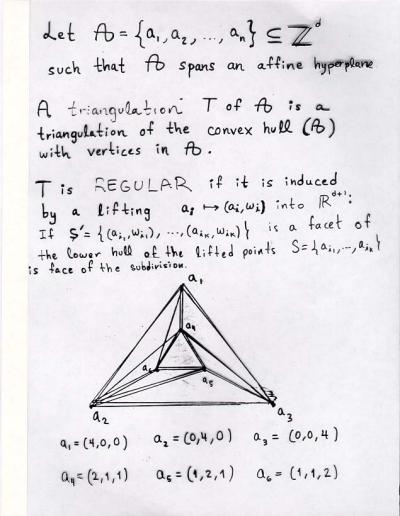 Let A = {a₁, a₂, ..., aₙ} ⊆ ℤᵈ
such that A spans an affine hyperplane
A triangulation T of A is a
triangulation of the convex hull (A)
with vertices in A.
T is REGULAR if it is induced
by a lifting aᵢ ↦ (aᵢ, wᵢ) into ℝᵈ⁺¹:
If S' = {(aᵢ₁, wᵢ₁), ..., (aᵢₖ, wᵢₖ)} is a facet of
the lower hull of the lifted points S = {aᵢ₁, ..., aᵢₖ}
is face of the subdivision.
a₁
a₄
a₆
a₅
a₂
a₃
a₁ = (4,0,0) a₂ = (0,4,0) a₃ = (0,0,4)
a₄ = (2,1,1) a₅ = (1,2,1) a₆ = (1,1,2)